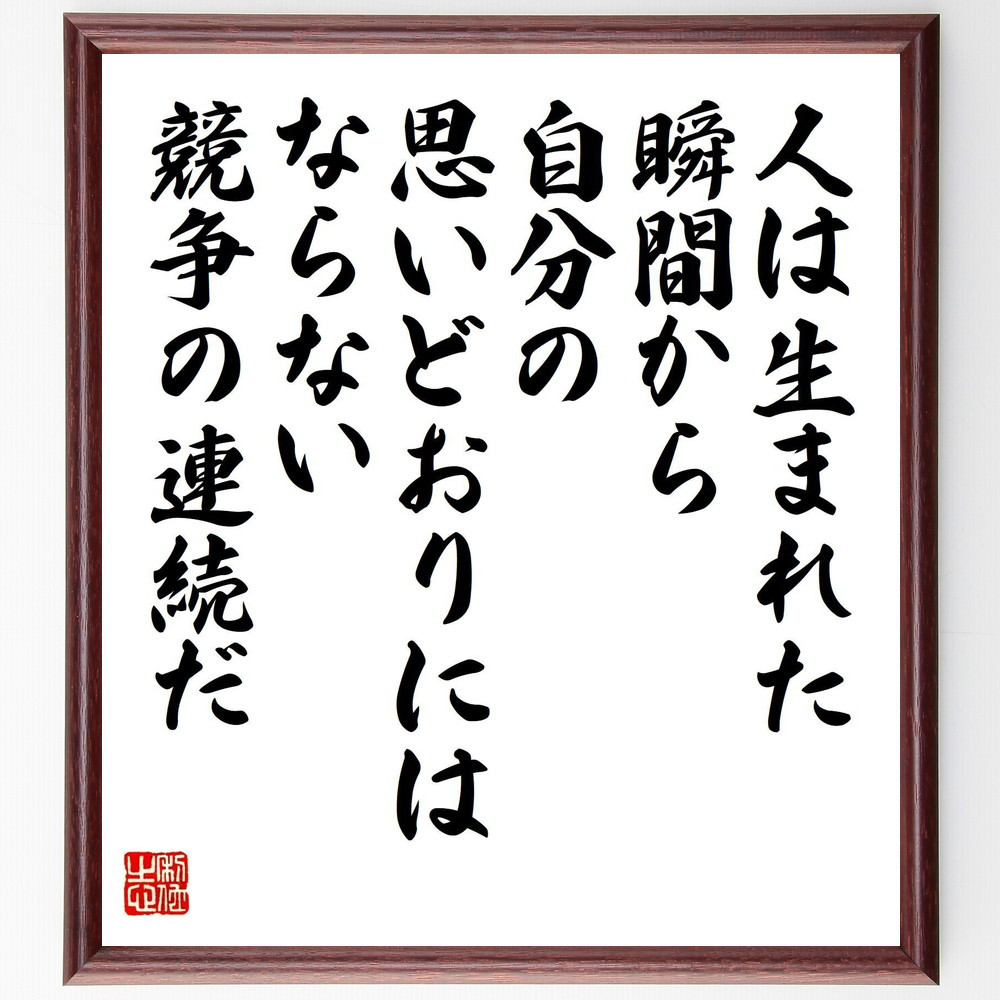 人は生まれた
瞬間から
自分の
思いどおりには
ならない
競争の連続だ